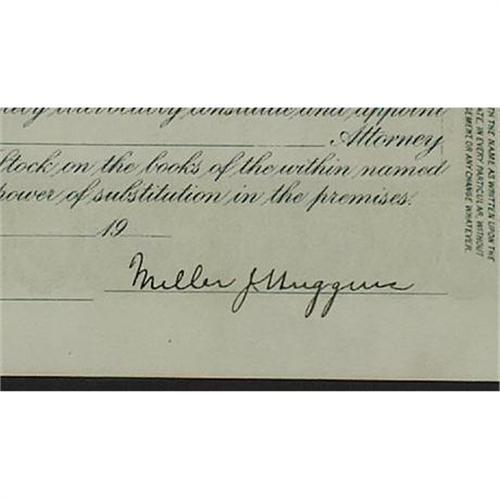 irrevocably constitute and appoint
Attorney
Stock on the books of the within named
power of substitution in the premises.
19
Miller J Huggins
TH THE NAME AS WRITTEN UPON THE
ATE, IN EVERY PARTICULAR, WITHOUT
GEMENT OR ANY CHANGE WHATEVER.